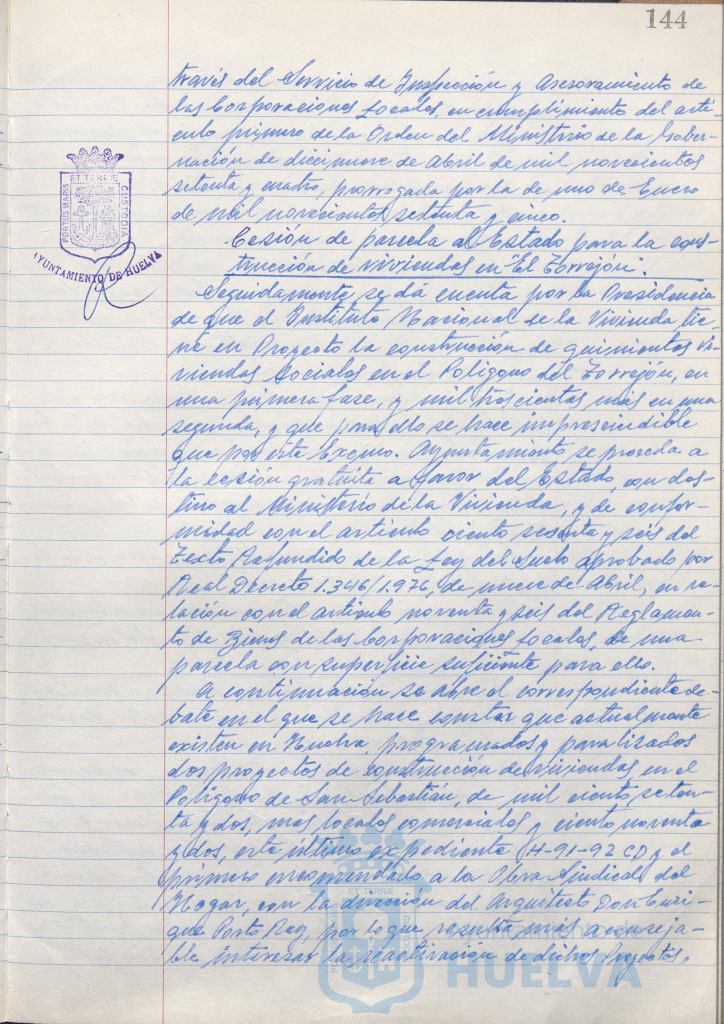 144
través del Servicio de Inspección y Asesoramiento de
las Corporaciones Locales, en cumplimiento del artí-
culo primero de la Orden del Ministerio de la Gober-
nación de diecinueve de Abril de mil novecientos
setenta y cuatro, prorrogada por la de uno de Enero
de mil novecientos setenta y cinco.
Cesión de parcela al Estado para la cons-
trucción de viviendas en "El Torrejón".
Seguidamente se dá cuenta por la Presidencia
de que el Instituto Nacional de la Vivienda tie-
ne en Proyecto la construcción de quinientas Vi-
viendas Sociales en el Polígono del Torrejón, en
una primera fase, y mil trescientas más en una
segunda, y que para ello se hace imprescindible
que por este Excmo. Ayuntamiento se proceda a
la cesión gratuita a favor del Estado, con des-
tino al Ministerio de la Vivienda, y de confor-
midad con el artículo ciento sesenta y seis del
Texto Refundido de la Ley del Suelo aprobado por
Real Decreto 1.346/1.976, de nueve de Abril, en re-
lación con el artículo noventa y seis del Reglamen-
to de Bienes de las Corporaciones Locales, de una
parcela con superficie suficiente para ello.
A continuación se abre el correspondiente de-
bate en el que se hace constar que actualmente
existen en Huelva, programados y paralizados
dos proyectos de construcción de viviendas, en el
Polígono de San Sebastián, de mil ciento seten-
ta y dos, mas locales comerciales y ciento noventa
y dos, este último expediente H-91-92 CD y el
primero encomendado a la Obra Sindical del
Hogar, con la dirección del Arquitecto Don Enri-
que Porto Rey, por lo que resulta más aconseja-
ble interesar la reactivación de dichos Proyectos.
PORTUS MARIS
ET TERRE
CUSTODIA
AYUNTAMIENTO DE HUELVA
ET TERRA
HUELVA